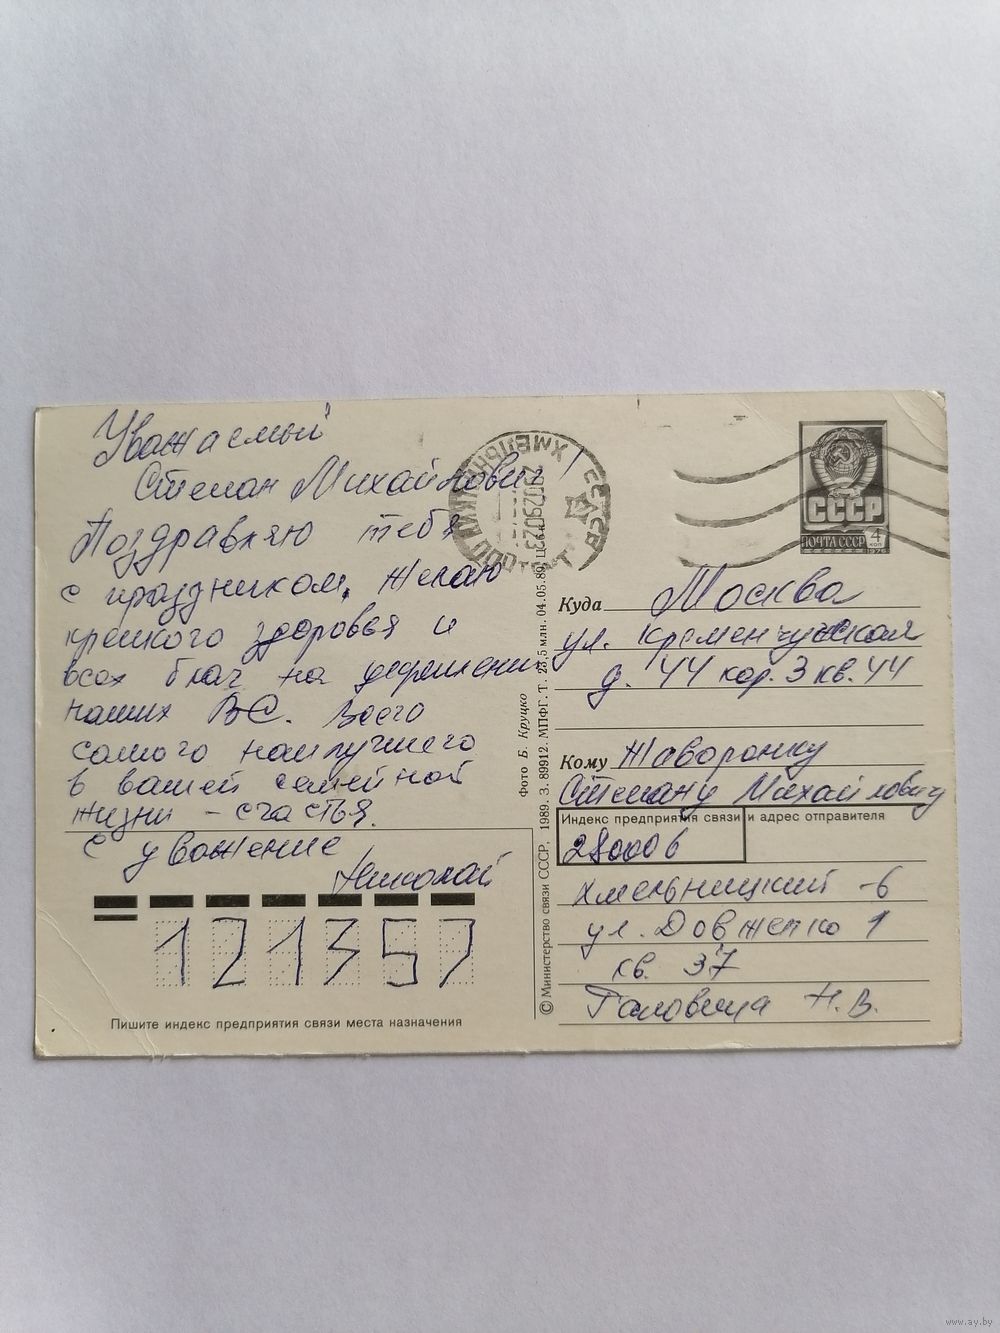 Уважаемый
Степан Михайлович!
Поздравляю тебя
с праздником. Желаю
крепкого здоровья и
всех благ на
наших ВС. Всего
самого наилучшего
в вашей семейной
жизни - счастья.
С уважение
Николай
121357
Пишите индекс предприятия связи места назначения
© Министерство связи СССР, 1989. З. 89912. МПФГ. Т. 23,5 млн. 04.05.89. Ц. 6 к.
Фото Б. Круцко
СССР
ХМЕЛЬНИЦКИЙ ПОЧТАМТ
СССР
ПОЧТА СССР 4 КОП
1976
Куда Москва
ул. Кременчугская
д. 44 кор. 3 кв. 44
Кому Жаворонку
Степану Михайловичу
Индекс предприятия связи и адрес отправителя
280006
Хмельницкий - 6
ул. Довженко 1
кв. 37
Головица Н. В.
www.ay.by